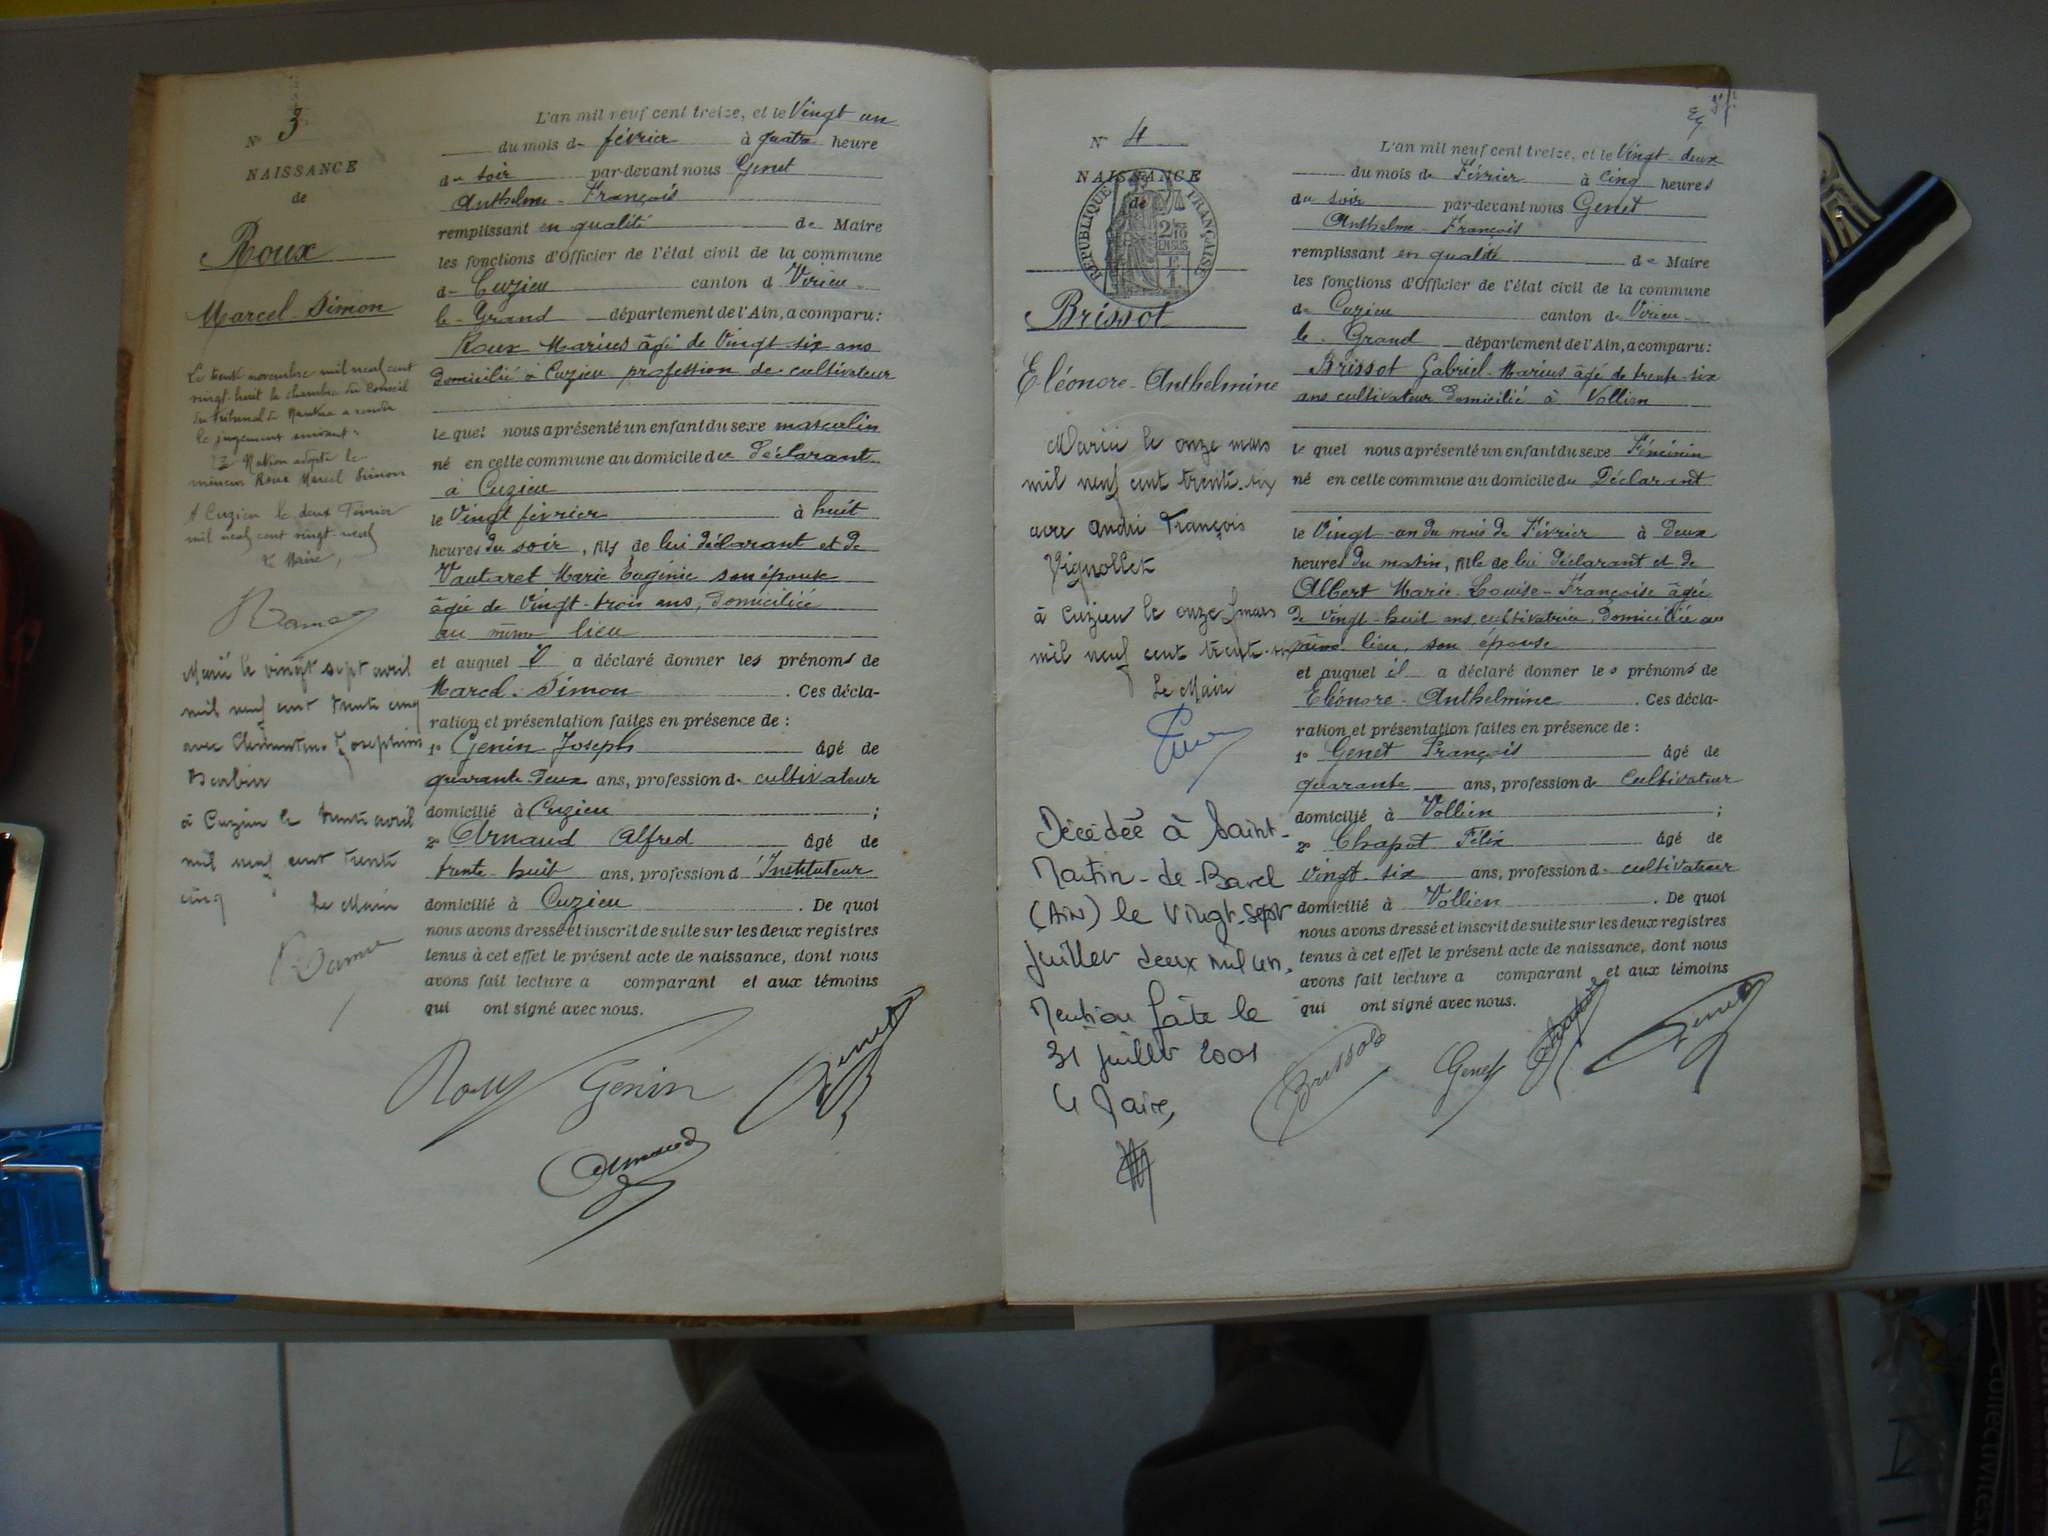 N° 3
NAISSANCE
de
Roux
Marcel-Simon
Le trente novembre mil neuf cent
vingt-huit la chambre du Conseil
du Tribunal de Nantua a rendu
le jugement suivant:
La Nation adopte le
mineur Roux Marcel Simon
A Cuzieu le deux Février
mil neuf cent vingt-neuf
Le Maire,
Marié le vingt sept avril
mil neuf cent trente cinq
avec Clémentine Joséphine
à Cuzieu le trente avril
mil neuf cent trente
cinq Le Maire
L'an mil neuf cent treize, et le Vingt un
du mois de février à quatre heure
du soir par-devant nous Genet
Anthelme-François
remplissant en qualité de Maire
les fonctions d'Officier de l'état civil de la commune
de Cuzieu canton d Virieu-
le-Grand département de l'Ain, a comparu:
Roux Marius âgé de Vingt-six ans
domicilié à Cuzieu profession de cultivateur
lequel nous a présenté un enfant du sexe masculin
né en cette commune au domicile du déclarant
à Cuzieu
le Vingt février à huit
heures du soir, fils de lui déclarant et de
Vautaret Marie Eugénie son épouse
âgée de Vingt-trois ans, domiciliée
au même lieu
et auquel il a déclaré donner les prénoms de
Marcel-Simon. Ces décla-
ration et présentation faites en présence de:
1° Genin Joseph âgé de
quarante-deux ans, profession de cultivateur
domicilié à Cuzieu;
2° Arnaud Alfred âgé de
trente-huit ans, profession d'Instituteur
domicilié à Cuzieu. De quoi
nous avons dressé et inscrit de suite sur les deux registres
tenus à cet effet le présent acte de naissance, dont nous
avons fait lecture a comparant et aux témoins
qui ont signé avec nous.
Roux Genin Genet
Arnaud
N° 4
NAISSANCE
de
RÉPUBLIQUE FRANÇAISE
Brissot
Eléonore-Anthelmine
Mariée le onze mars
mil neuf cent trente-six
avec André François
Vignollet
à Cuzieu le onze mars
mil neuf cent trente-six
Le Maire
Décédée à Saint-
Martin-de-Bavel
(Ain) le vingt-sept
juillet deux mil un.
Mention faite le
31 juillet 2001
Le Maire,
L'an mil neuf cent treize, et le Vingt-deux
du mois de Février à cinq heures
du soir par-devant nous Genet
Anthelme-François
remplissant en qualité de Maire
les fonctions d'Officier de l'état civil de la commune
de Cuzieu canton de Virieu-
le-Grand département de l'Ain, a comparu:
Brissot Gabriel-Marius âgé de trente-six
ans cultivateur domicilié à Vollien
lequel nous a présenté un enfant du sexe Féminin
né en cette commune au domicile du Déclarant
le Vingt-un du mois de Février à deux
heures du matin, fille de lui déclarant et de
Albert Marie-Louise-Françoise âgée
de vingt-huit ans, cultivatrice, domiciliée au
même lieu, son épouse
et auquel il a déclaré donner les prénoms de
Eléonore-Anthelmine. Ces décla-
ration et présentation faites en présence de:
1° Genet François âgé de
quarante ans, profession de Cultivateur
domicilié à Vollien;
2° Chapot Félix âgé de
vingt-six ans, profession de cultivateur
domicilié à Vollien. De quoi
nous avons dressé et inscrit de suite sur les deux registres
tenus à cet effet le présent acte de naissance, dont nous
avons fait lecture a comparant et aux témoins
qui ont signé avec nous.
Brissot Genet Chapot Genet